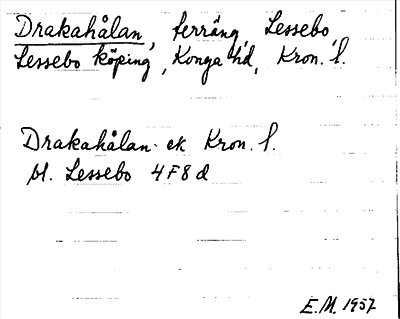 Drakahålan, terräng, Lessebo,
Lessebo köping, Konga hd, Kron. l.
Drakahålan ek Kron. l.
bl. Lessebo 4F8d
E.M. 1957